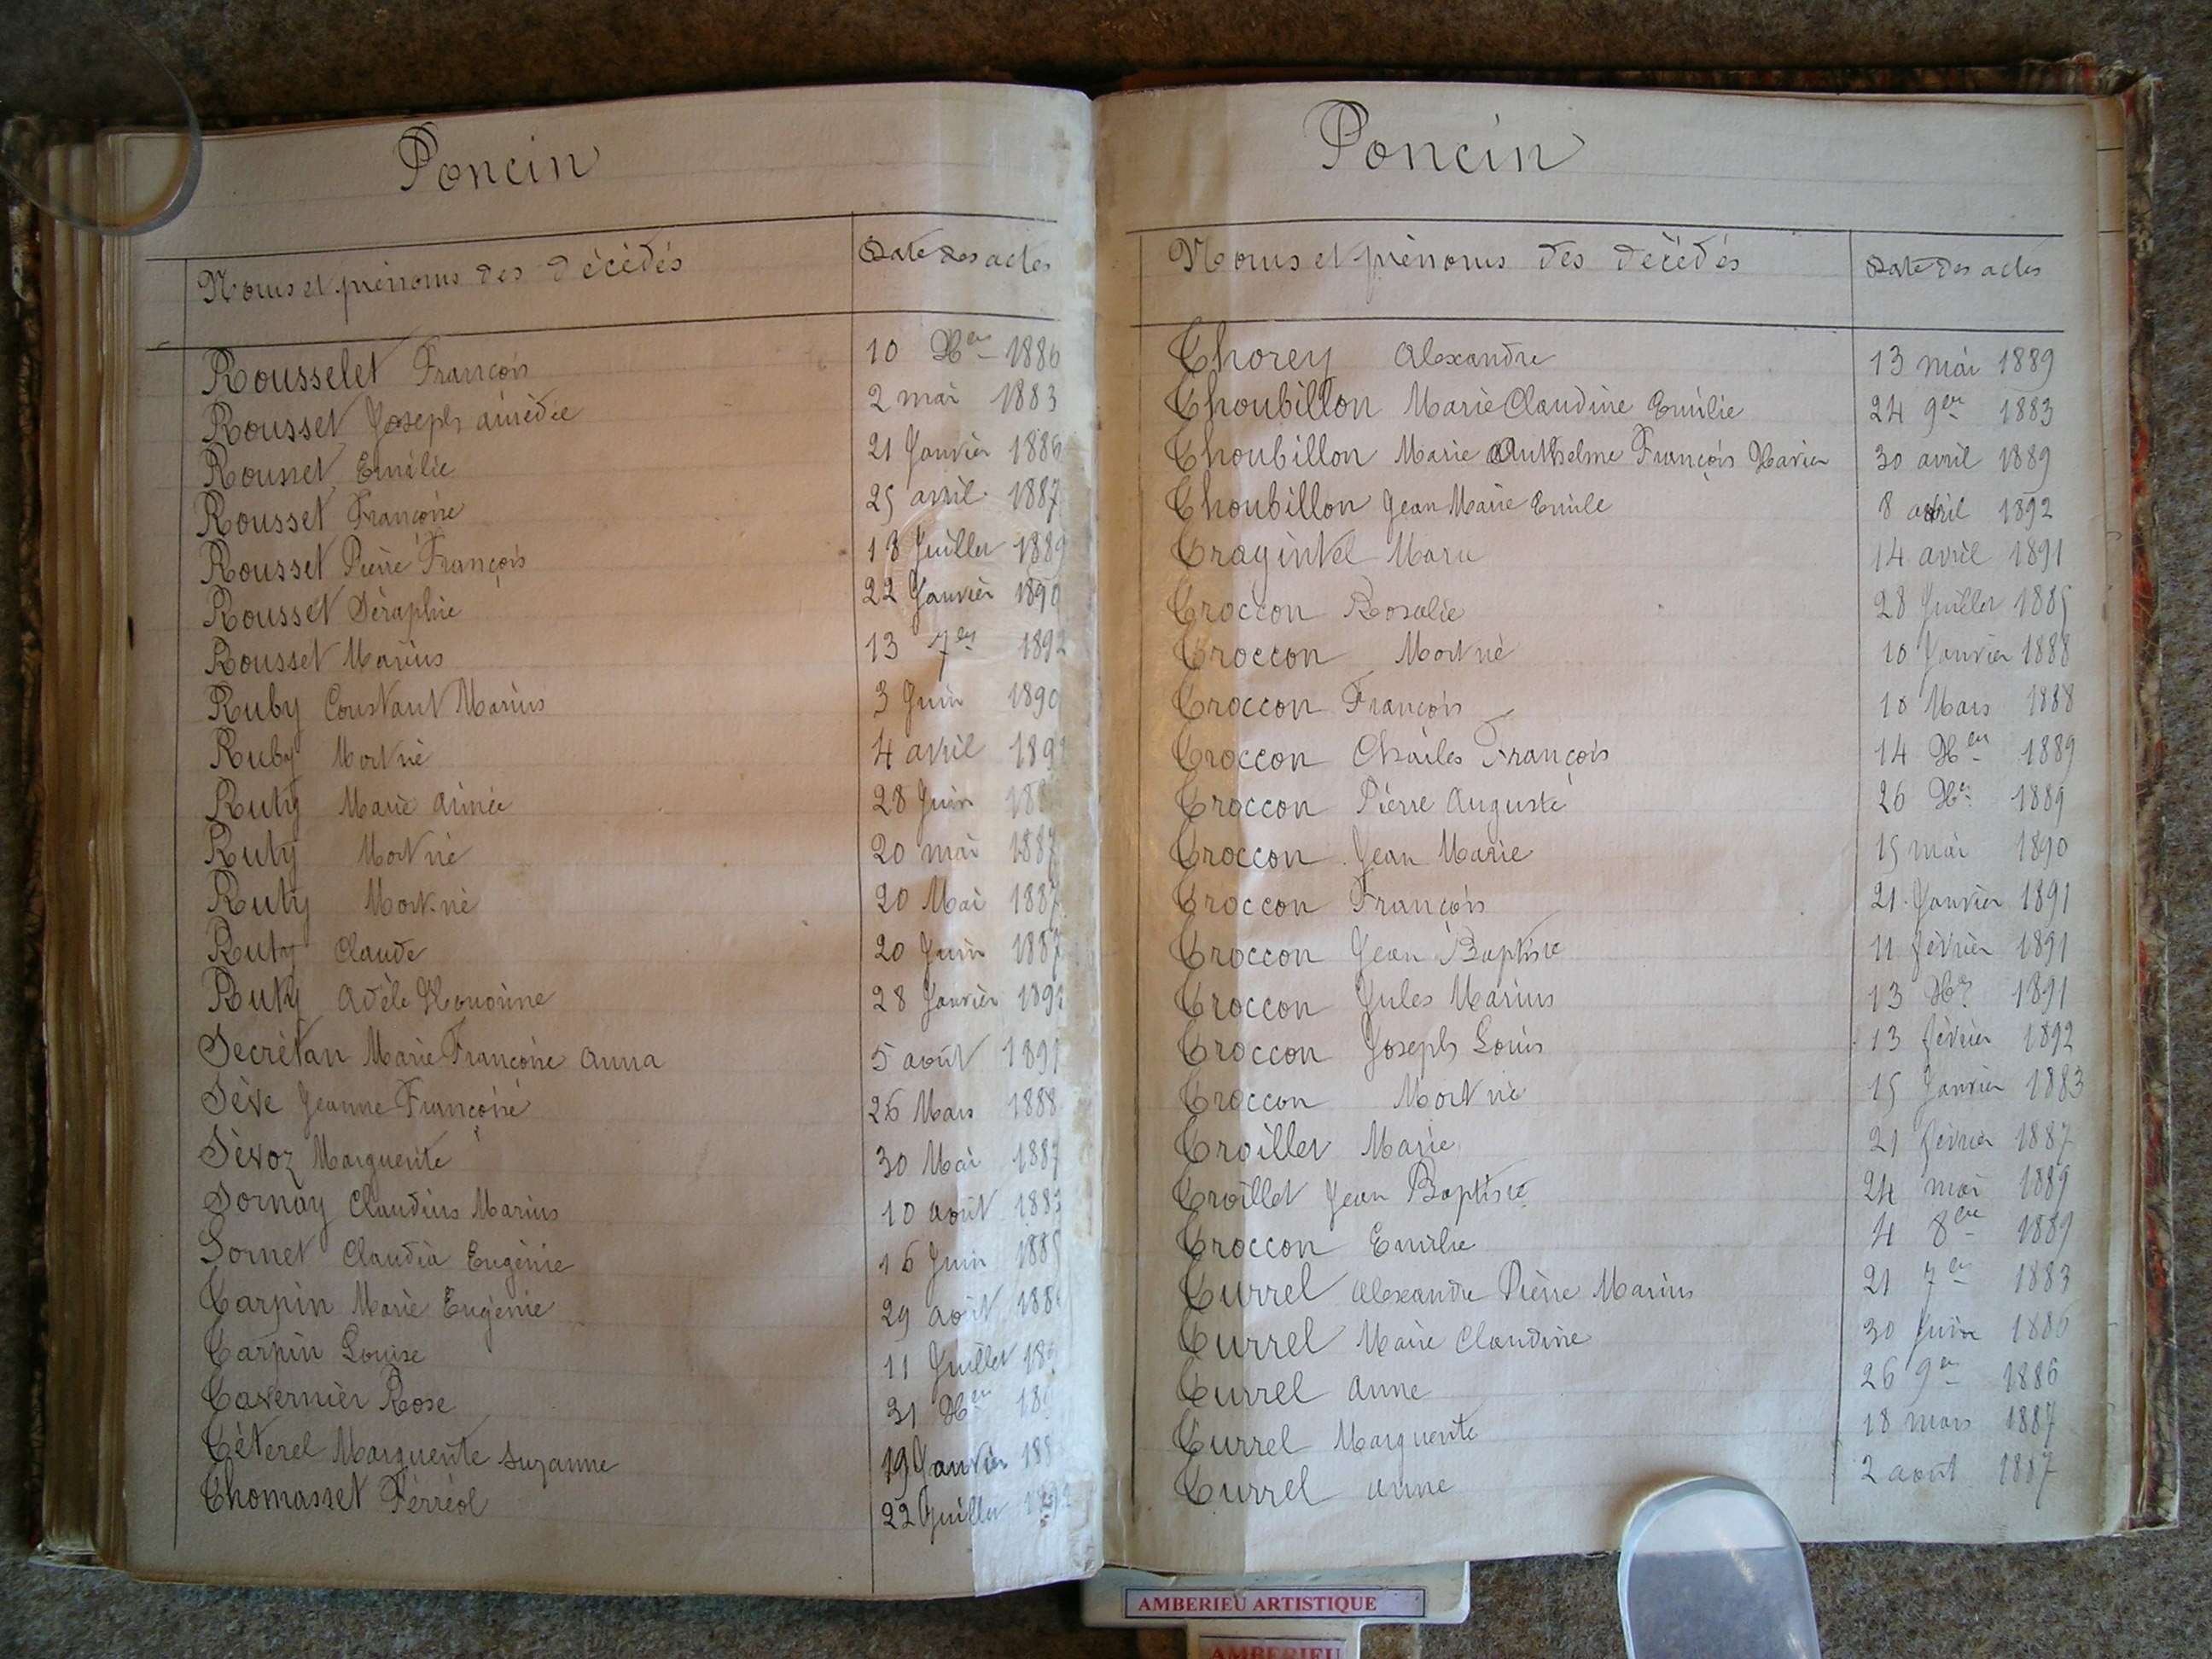 Poncin
Noms et prénoms des décédés Date des actes
Rousselet François 10 Xbre 1886
Rousset Joseph Amédée 2 mai 1883
Rousset Emélie 21 Janvier 1886
Rousset Françoise 25 avril 1887
Rousset Pierre François 18 Juillet 1889
Rousset Séraphie 22 Janvier 1890
Rousset Marius 13 7bre 1892
Ruby Constant Marius 3 Juin 1890
Ruby Mort né 4 avril
Ruty Marie Aimée 28 Juin
Ruty Mort né 20 mai 1887
Ruty Mort né 20 Mai 1887
Ruty Claude 20 Juin 1887
Ruty Adèle Honorine 28 Janvier
Secrétan Marie Françoise Anna 5 août 1891
Sève Jeanne Françoise 26 Mars 1888
Sèvoz Marguerite 30 Mai 1887
Sornay Claudius Marius 10 août 1883
Sornet Claudia Eugénie 16 Juin 1885
Tarpin Marie Eugénie 29 août
Tarpin Louise 11 Juillet
Tavernier Rose 31 Xbre
Téterel Marguerite Suzanne 19 Janvier
Thomasset Férréol 22 Juillet
Poncin
Noms et prénoms des décédés Date des actes
Thorey Alexandre 13 mai 1889
Thoubillon Marie Claudine Emilie 24 9bre 1883
Thoubillon Marie Anthelme François Xavier 30 avril 1889
Thoubillon Jean Marie Emile 8 avril 1892
Tragintel Marie 14 avril 1891
Troccon Rosalie 28 Juillet 1885
Troccon Mort né 10 Janvier 1888
Troccon François 10 Mars 1888
Troccon Charles François 14 Xbre 1889
Troccon Pierre Auguste 26 Xbre 1889
Troccon Jean Marie 15 mai 1890
Troccon François 21 Janvier 1891
Troccon Jean Baptiste 11 février 1891
Troccon Jules Marius 13 Xbre 1891
Troccon Joseph Louis 13 février 1892
Troccon Mort né 15 Janvier 1883
Troillet Marie 21 février 1887
Troillet Jean Baptiste 24 mai 1889
Troccon Emilie 4 8bre 1889
Turrel Alexandre Pierre Marius 21 7bre 1883
Turrel Marie Claudine 30 Juin 1886
Turrel Anne 26 9bre 1886
Turrel Marguerite 18 mars 1887
Turrel Anne 2 août 1887
AMBERIEU ARTISTIQUE
AMBERIEU